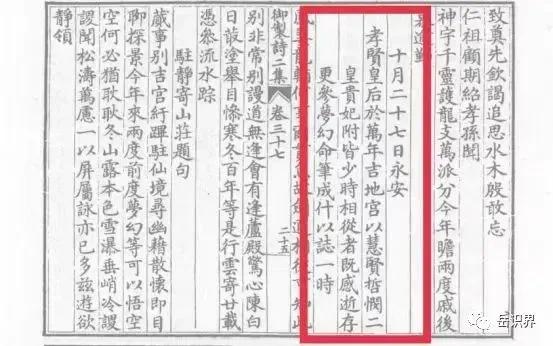 致奠先欽謁追思水木殷敢忘
仁祖顧期紹孝孫聞
神宇千靈護龍文萬派分今年瞻兩度感後
勤
十月二十七日永安
孝賢皇后於萬年吉地宮以慧賢哲憫二
皇貴妃附皆少時相從者既感逝存
更參夢幻命筆成什以誌一時
龍 何 爾 故 相從可知此
御製詩二集 卷三十七 二十五
別非常別謾道無逢會有逢蘆殿驚心陳白
日敲塗舉目慘寒冬百年等是行雲寄廿載
憑參流水踪
駐靜寄山莊題句
蕆事別吉宮紆蹕駐仙境尋幽藉散懷即目
聊探景今年來兩度前度夢幻等可以悟空
空何必猶耿耿冬山露本色雪瀑垂峭冷謖
謖聞松濤萬慮一以屏屬詠亦已多茲遊欲
靜領
岳识界